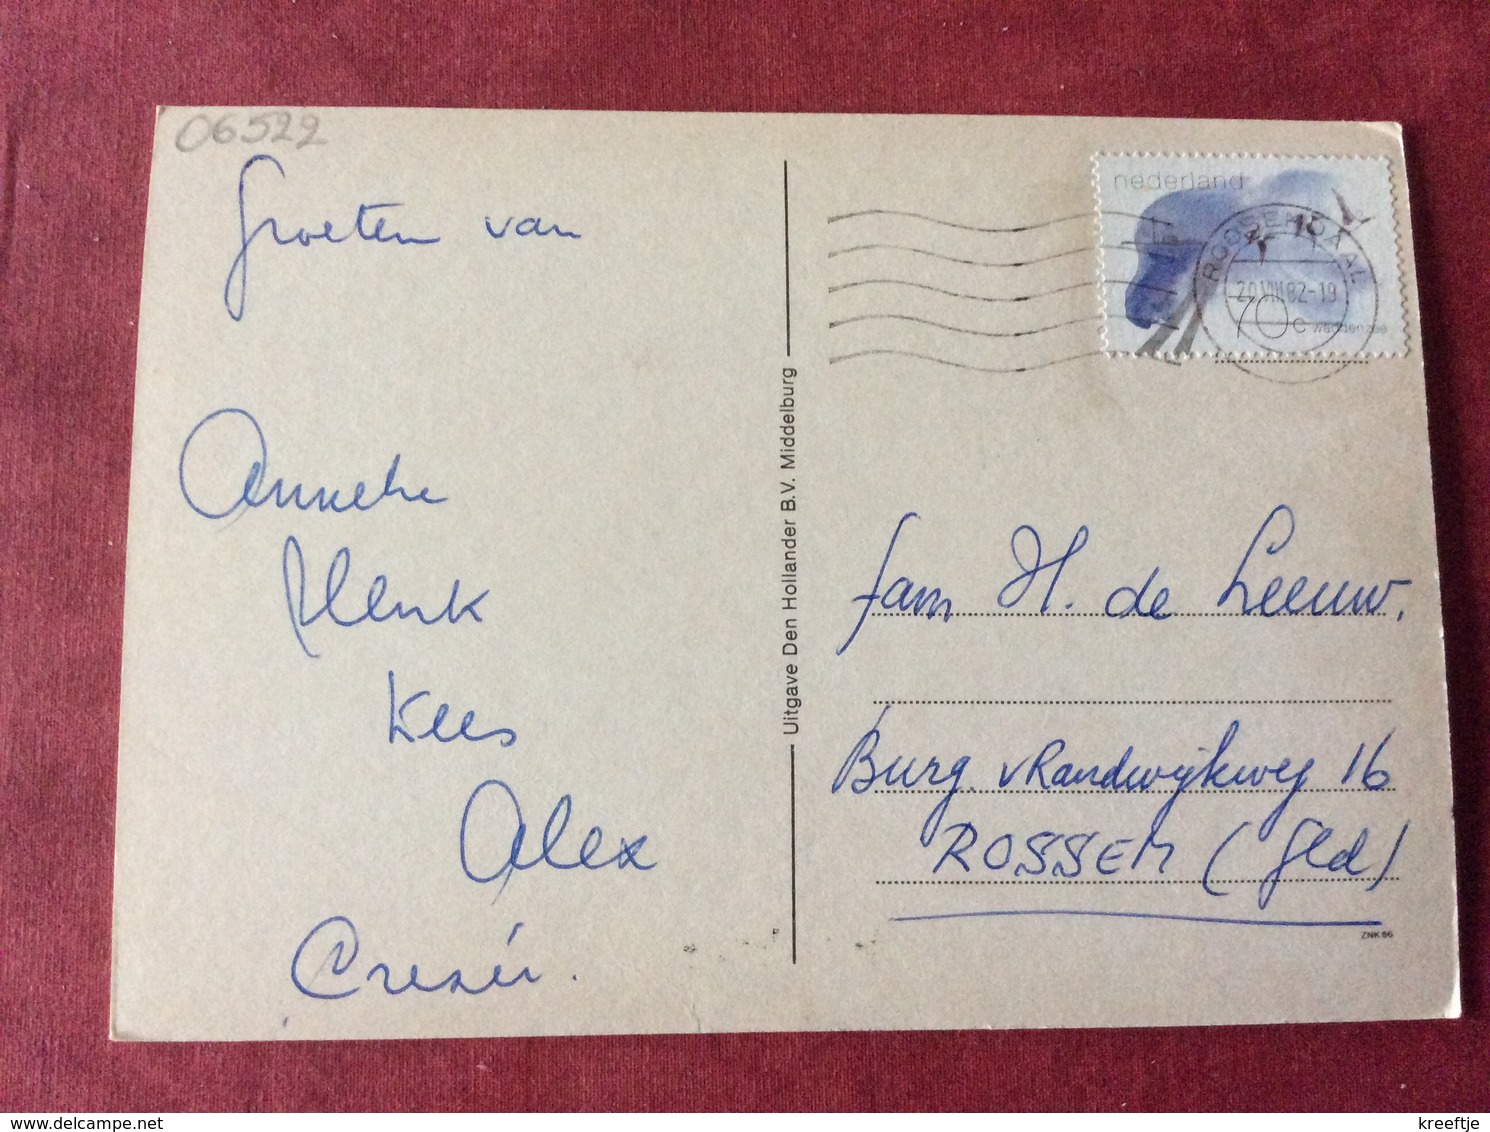 06522
Groeten van
Anneke
Henk
Kees
Alex
Uitgave Den Hollander B.V. Middelburg
nederland
ROOSENDAAL
20.VIII.82-19
70c waddenzee
fam H. de Leeuw.
Burg. v Randwijkweg 16
ROSSEM (Gld)
ZNK 86
delcampe.net
kreeftje